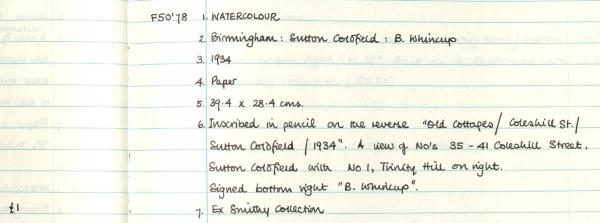 F50'78 1. WATERCOLOUR
2. Birmingham: Sutton Coldfield: B. Whincup
3. 1934
4. Paper
5. 39.4 x 28.4 cms.
6. Inscribed in pencil on the reverse "Old Cottages / Coleshill St. /
Sutton Coldfield / 1934". A view of No's 35-41 Coleshill Street,
Sutton Coldfield with No 1, Trinity Hill on right.
Signed bottom right "B. Whincup".
£1 7. Ex Smithy Collection